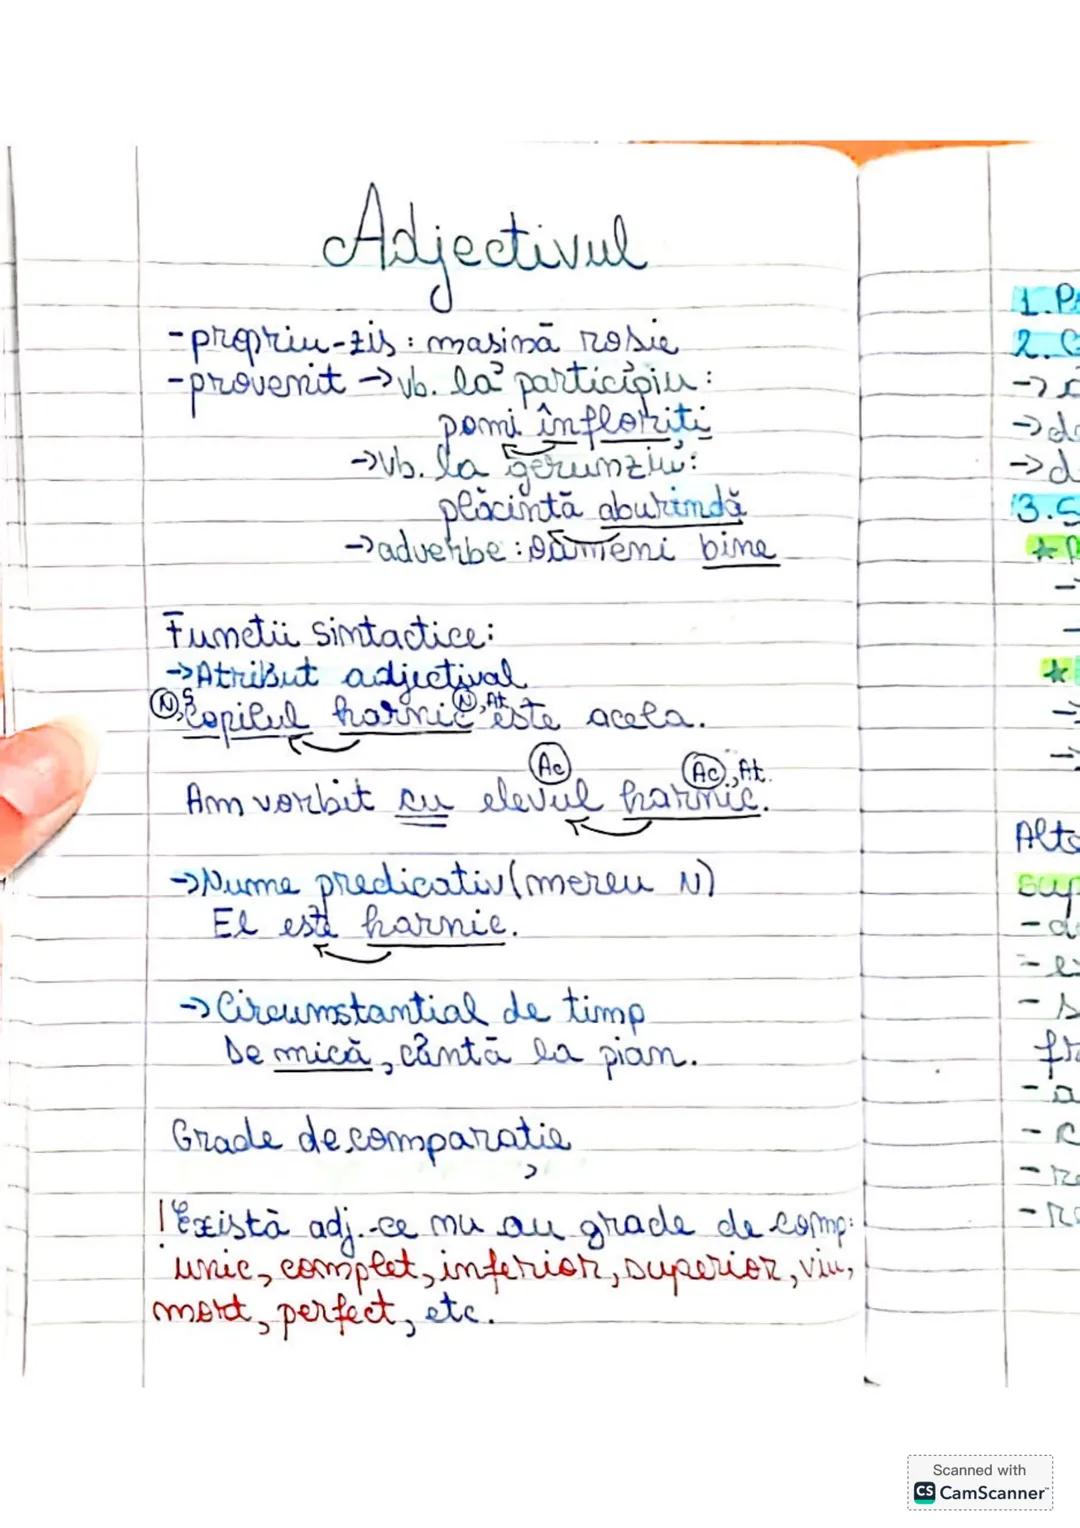 Adjectivul
-propriu-zis: masină rosie
-provenit →vb. la participiu:
pomi înfloriți
→vb. la gerunziu:
plăcintă aburindă
→adverbe: oameni bine
Functii sintactice:
→Atribut adjectival
N, S N, At
Copilul harnic este acela.
Ac Ac, At.
Am vorbit cu elevul harnic.
→Nume predicativ (mereu N)
El este harnic.
→Circumstantial de timp
De mică, cântă la pian.
Grade de comparație
! Există adj. ce nu au grade de comp:
unic, complet, inferior, superior, viu,
mort, perfect, etc.
1.P
2.
3.S
Scanned with
CS CamScanner